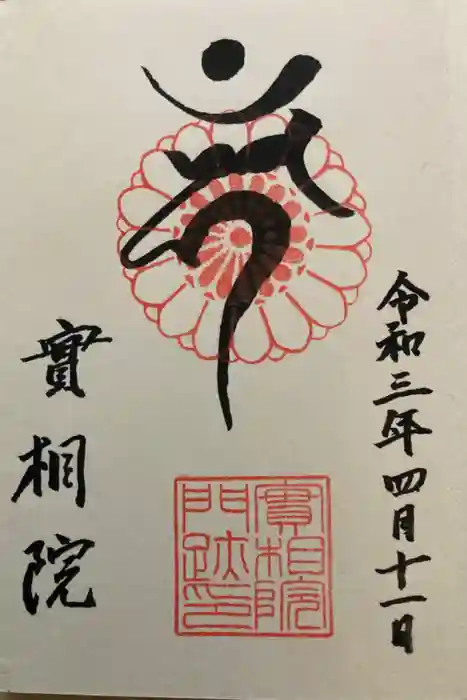 令和三年四月十一日
實相院
門跡印
實相院